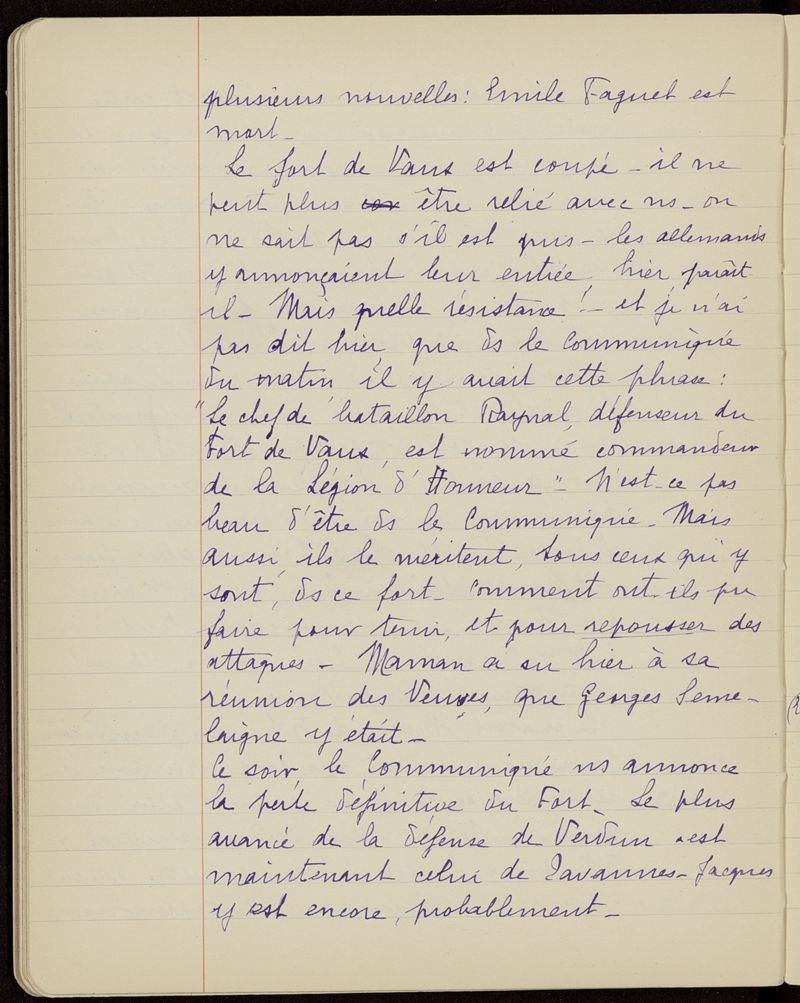 plusieurs nouvelles : Emile Faguet est
mort _
Le fort de Vaux est coupé _ il ne
peut plus être relié avec ns _ on
ne sait pas s'il est pris _ les allemands
y annonçaient leur entrée, hier, paraît
il _ Mais quelle résistance ! _ et je n'ai
pas dit hier, que ds le Communiqué
du matin il y avait cette phrase :
"Le chef de bataillon Raynal, défenseur du
Fort de Vaux, est nommé commandeur
de la Légion d'Honneur" _ N'est-ce pas
beau d'être ds le Communiqué _ Mais
aussi, ils le méritent, tous ceux qui y
sont, ds ce fort _ Comment ont-ils pu
faire pour tenir, et pour repousser des
attaques _ Maman a su hier à sa
réunion des Veuves, que Georges Seme-
laigne y était _
Ce soir, le Communiqué ns annonce
la perte définitive du Fort _ Le plus
avancé de la défense de Verdun est
maintenant celui de Tavannes _ Jacques
y est encore, probablement _